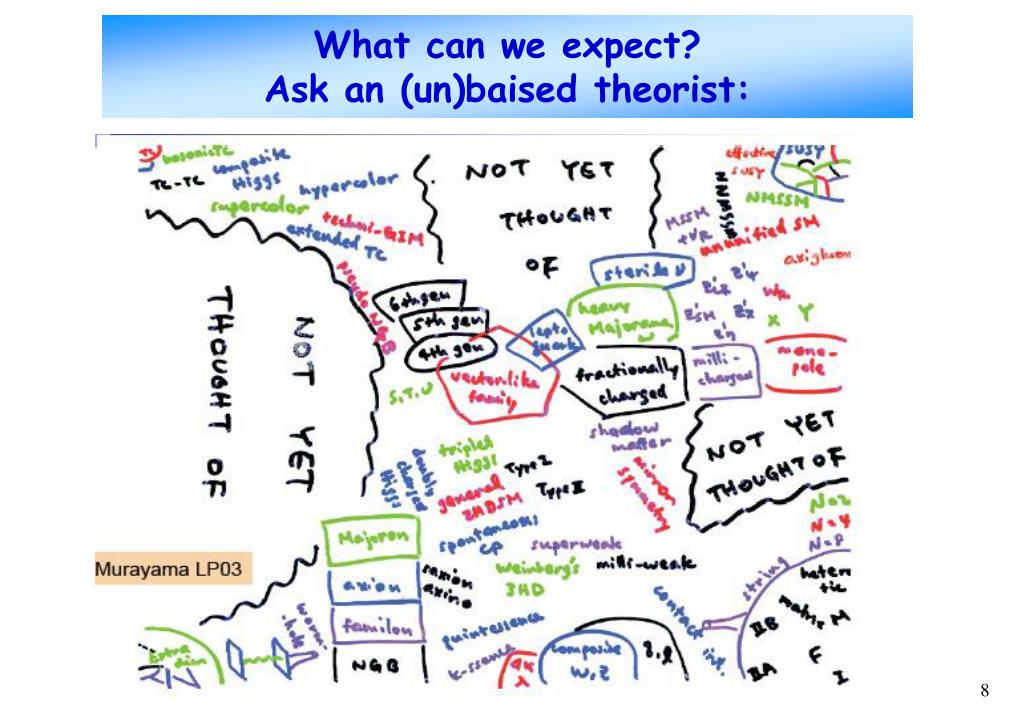 What can we expect?
Ask an (un)baised theorist:
bosonic TC
TC-TC
composite
Higgs
hypercolor
supercolor
techni-GIM
extended TC
pseudo NGB
NOT YET
THOUGHT
OF
effective
SUSY
SUSY
NMSSM
NNMSSM
MSSM
+νR
ununified SM
axigluon
sterile ν
6th gen
5th gen
4th gen
heavy
Majorana
ν
lepto
quark
WR
X Y
vectorlike
family
fractionally
charged
milli-
charged
mono-
pole
S,T,U
NOT YET
THOUGHT OF
shadow
matter
mirror
symmetry
NOT YET
THOUGHT OF
triplet
Higgs
doubly
charged
Higgs
Type I
Type II
general
2HDSM
spontaneous
CP
superweak
Weinberg's
3HD
milli-weak
N=2
N=4
N=8
string
heterotic
matrix M
IIB
IIA
F
I
contact
Majoron
axion
saxion
axino
familon
NGB
Murayama LP03
worm-
hole
Extra
dim
quintessence
k-ssence
composite
W,Z
q,l
8